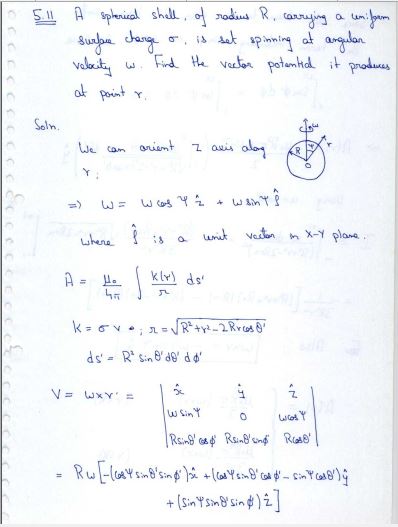 5.11 A spherical shell, of radius R, carrying a uniform
surface charge σ, is set spinning at angular
velocity ω. Find the vector potential it produces
at point r.
Soln.
We can orient Z axis along
r;
ω
R
ψ
r
O
=> ω = ω cos Ψ ẑ + ω sin Ψ ρ̂
where ρ̂ is a unit vector in X-Y plane.
A = μ₀/4π ∫ K(r)/r ds'
K = σ v ; r = √(R²+r²-2Rr cosθ')
ds' = R² sinθ' dθ' dφ'
V = ω×r' = | x̂ ŷ ẑ |
| ω sin Ψ 0 ω cos Ψ |
| R sinθ' cosφ' R sinθ' sinφ' R cosθ' |
= Rω [-(cosΨ sinθ' sinφ') x̂ + (cosΨ sinθ' cosφ' - sinΨ cosθ') ŷ
+ (sinΨ sinθ' sinφ') ẑ]